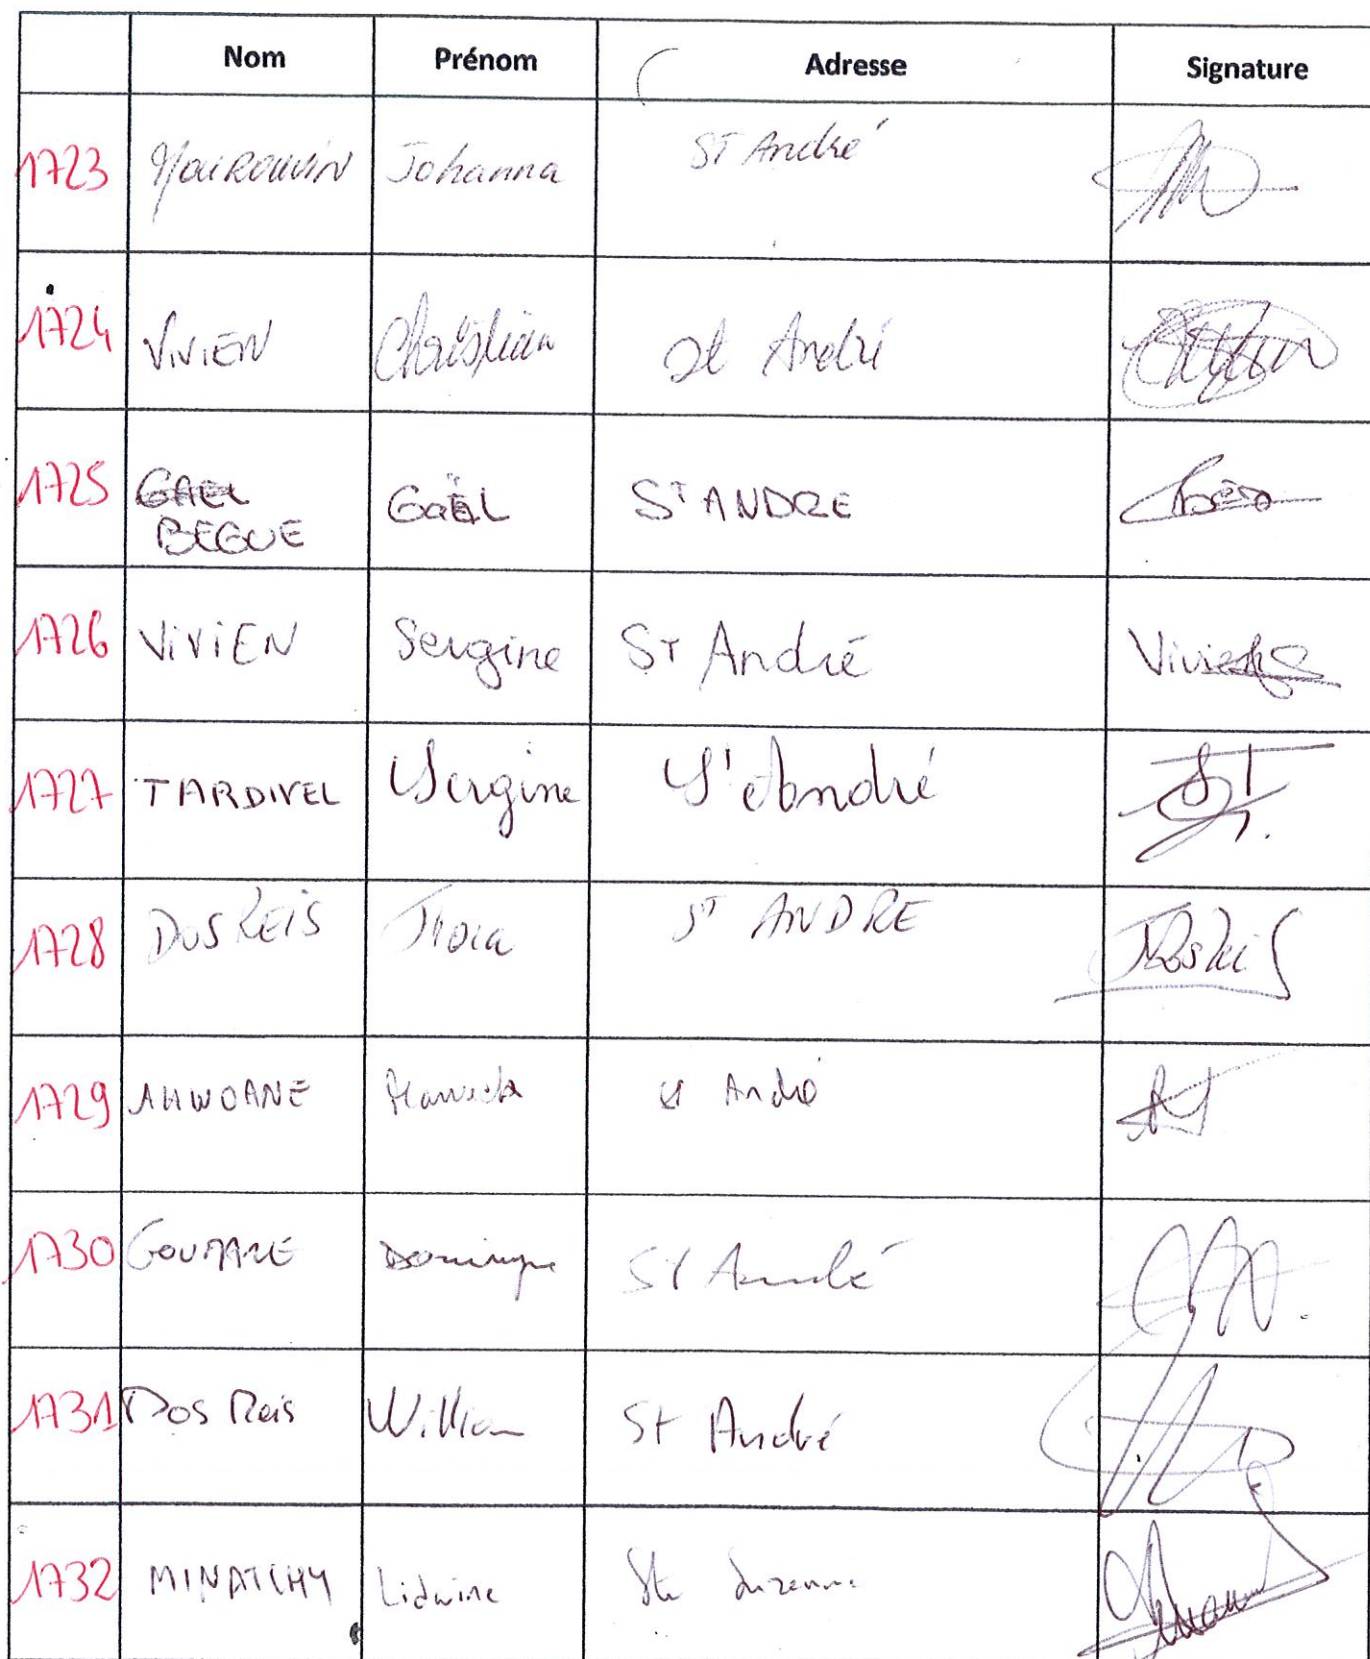 Nom Prénom Adresse Signature
1723 Johanna ST André
1724 VIVIEN Christian St André
1725 GAEL Gaël ST ANDRE
BEGUE
1726 ViViEN Sergine ST André Vivien
1727 TARDIVEL Sergine St André
1728 DOS REIS ST ANDRE
1729 AHWOANE St André
1730 Dominique St André
1731 Dos Reis William St André
1732 MINATCHY Lidwine Ste Suzanne